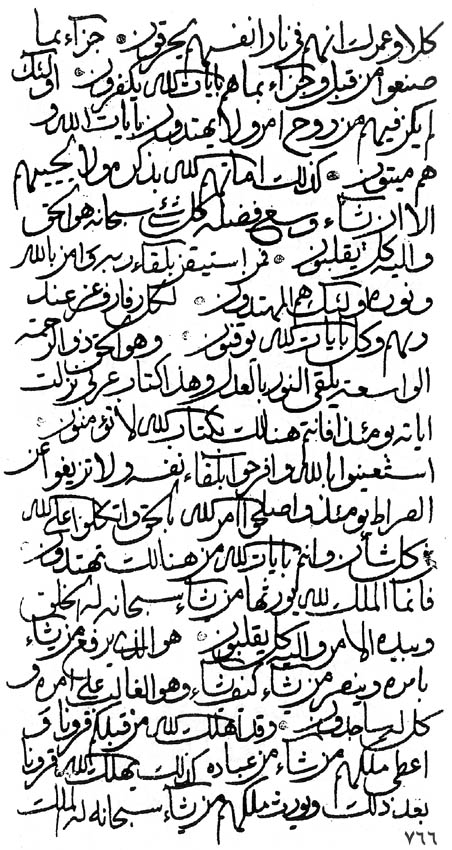 كلا وعمرك انهم في نار انفسهم يحرقون ۞ جزاء بما
صنعوا من قبل وجزاء بما هم بايات الله يكفرون ۞ اولئك
لم يكن فيهم من روح امر ولا يهتدون بايات الله و
هم ميتون ۞ كذلك اماتهم الله بذكر مولا يحييهم
الا ان شاء وسع فضله كل شئ سبحانه هو الحق
واليه كل يقلبون ۞ فمن استيقن بلقاء ربه وامن بالله
ونوره اولئك هم المهتدون ۞ لكل فار وغر عند
ربهم وكل بايات الله يوقنون ۞ وهو الحق ذو الرحمة
الواسعة يلقي النور بالعدل وهذا كتاب عربي نزلت
اياته يومئذ افانتم هنالك بكتاب الله لا تؤمنون
استعينوا بالله وافرحوا بلقاء نفسه ولا تزيغوا عن
الصراط يومئذ واصلحوا امر الله بالحق واتكلوا على الله
في كل شأن وانتم بايات الله من هنالك تهتدون
فانما الملك لله يورثها من يشاء سبحانه له الخلق
وبيده الامر واليه كل يقلبون ۞ هو الذي يرفع من يشاء
بامره وينصر من يشاء كيف شاء وهو الغالب على امره و
كل له ساجدون ۞ وقد اهلك الله من قبلكم قرونا و
اعطى ملكهم من شاء من عباده كذلك يهلك الله قرونا
بعد ذلك ويورث ملكهم من يشاء سبحانه له الملك
٧٦٦